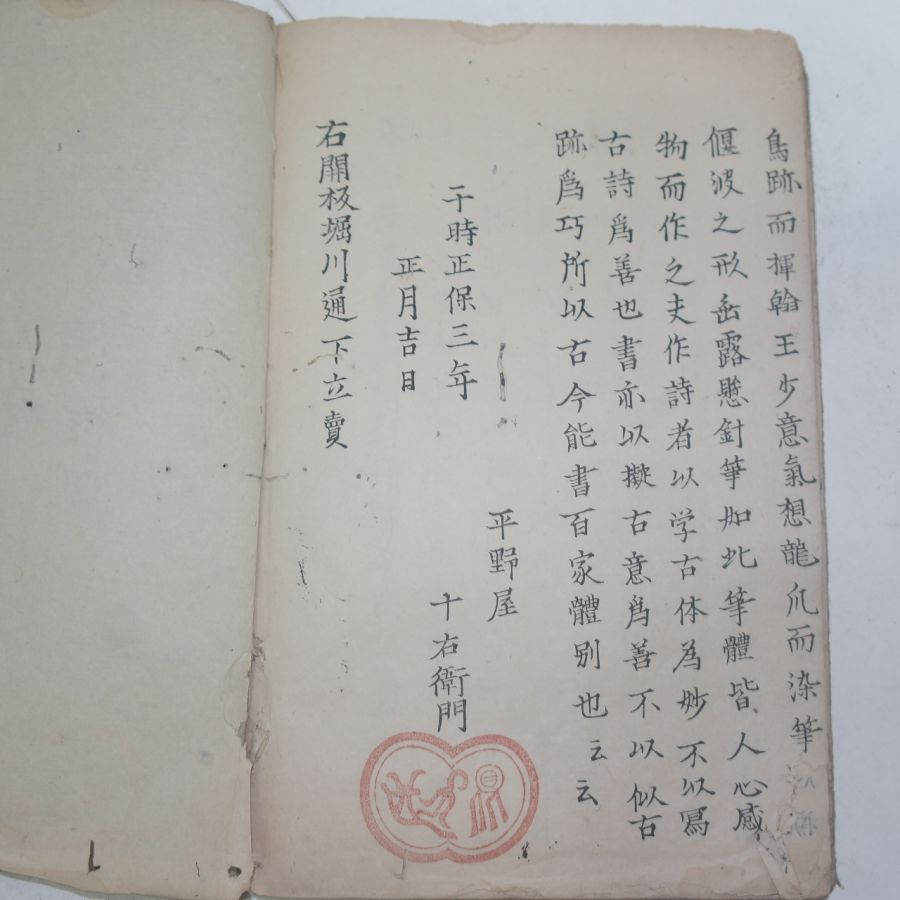 鳥跡而揮翰王少意氣想龍爪而染筆
偃波之形垂露懸針等如此等體皆人心感
物而作之夫作詩者以学古体為妙不以寫
古詩爲善也書亦以擬古意爲善不以似古
跡爲巧所以古今能書百家體別也云云
平野屋
于時正保三年
十右衛門
正月吉日
右開板堀川通下立賣